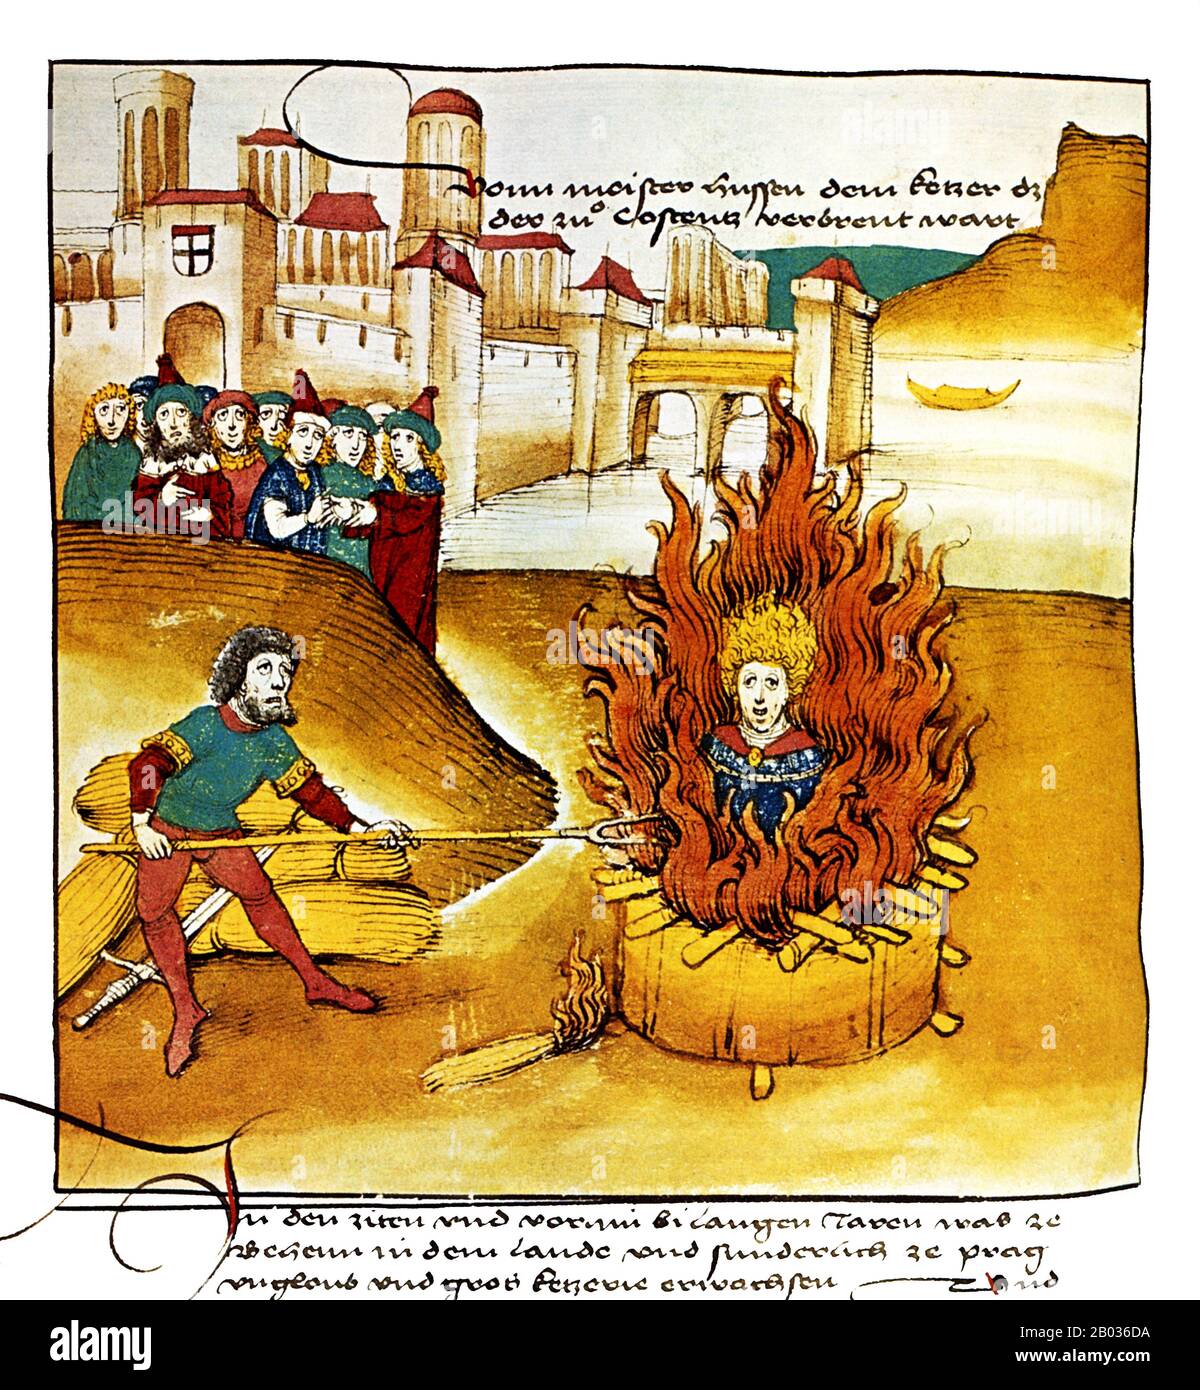 Vonn meister Hussen dem ketzer dz
der zuͦ Costentz verbrent wart
In den ziten und vormin bi langen Jaren was ze
Behenn in dem lande und sunderlich ze prag
ungloub und gros ketzerie erwachsen Und
alamy
Image ID: B2036DA
www.alamy.com